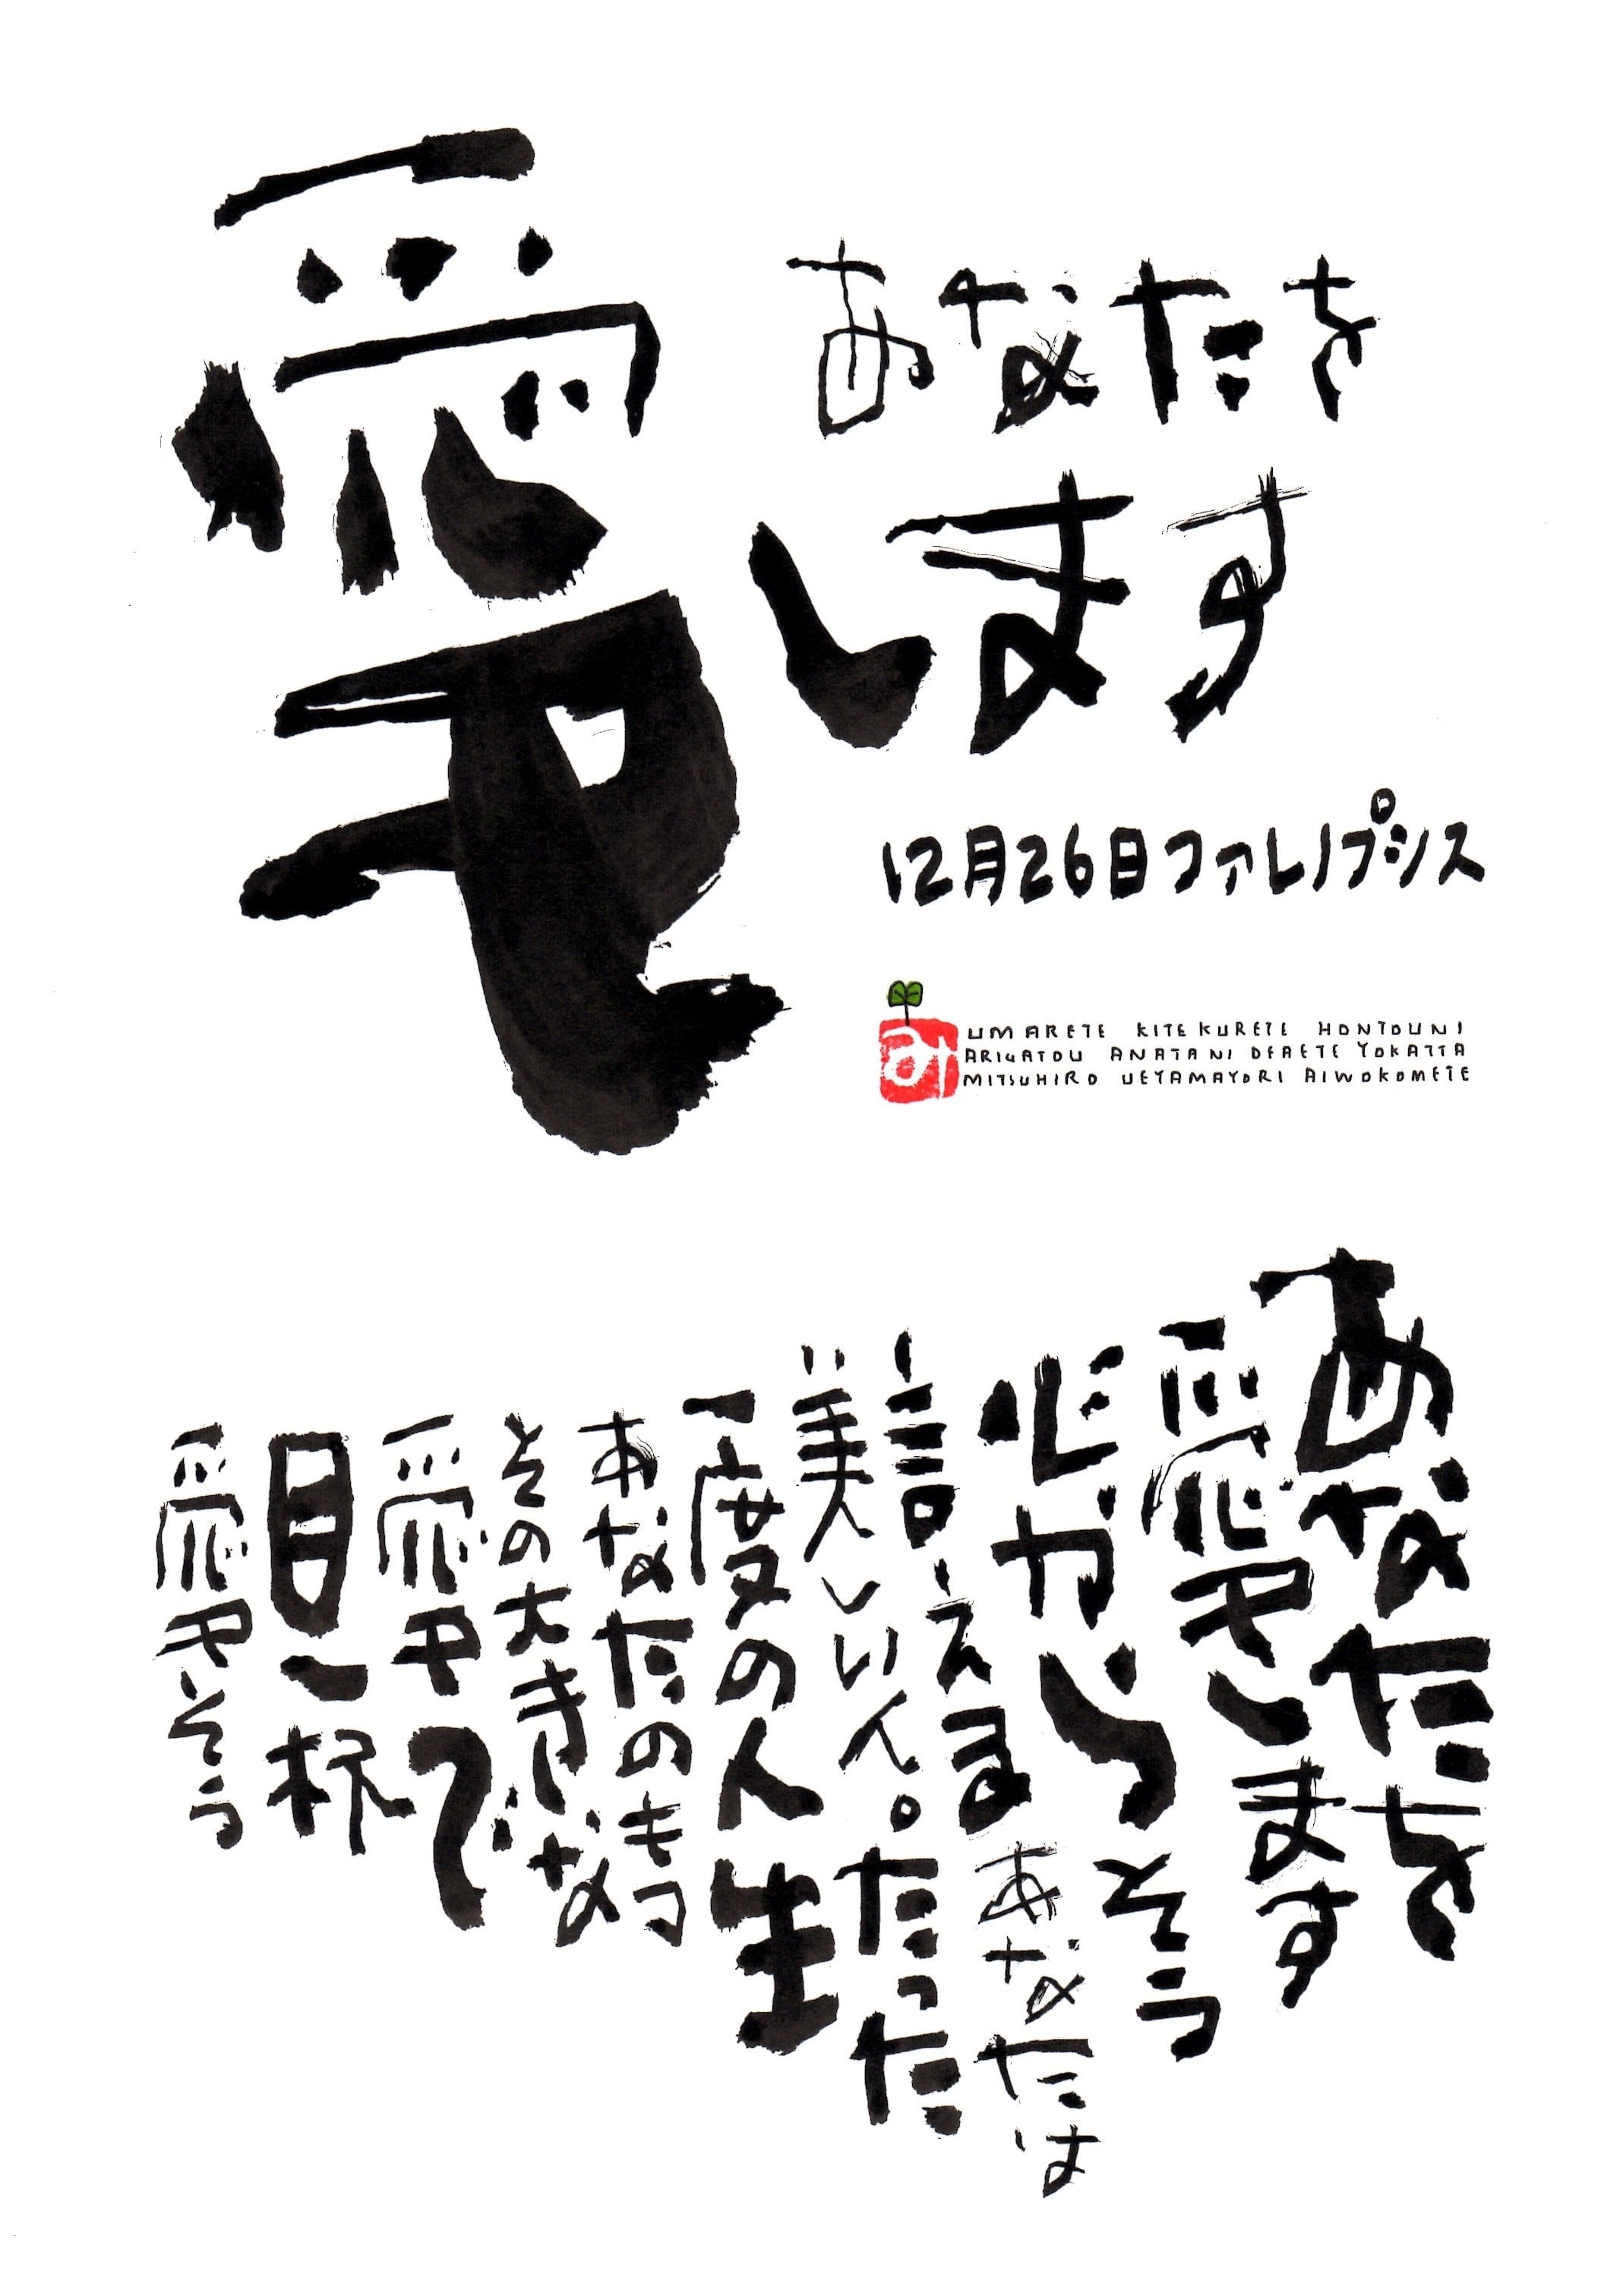 あなたを
愛します
12月26日ファレノプシス
みつ
UMARETE KITEKURETE HONTOUNI
ARIGATOU ANATANI DEAETE YOKATTA
MITSUHIRO UEYAMAYORI AIWOKOMETE
あなたを
愛します
心からそう
言えるあなたは
美しい人。たった
一度の人生
あなたのもつ
その大きな
愛で
目一杯
愛そう